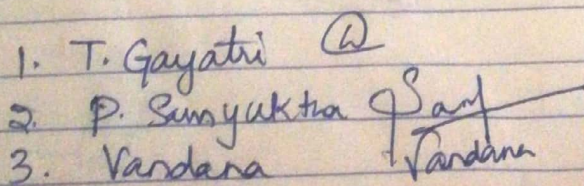 1. T. Gayatri
2. P. Sunyuktha Sam
3. Vandana Vandana